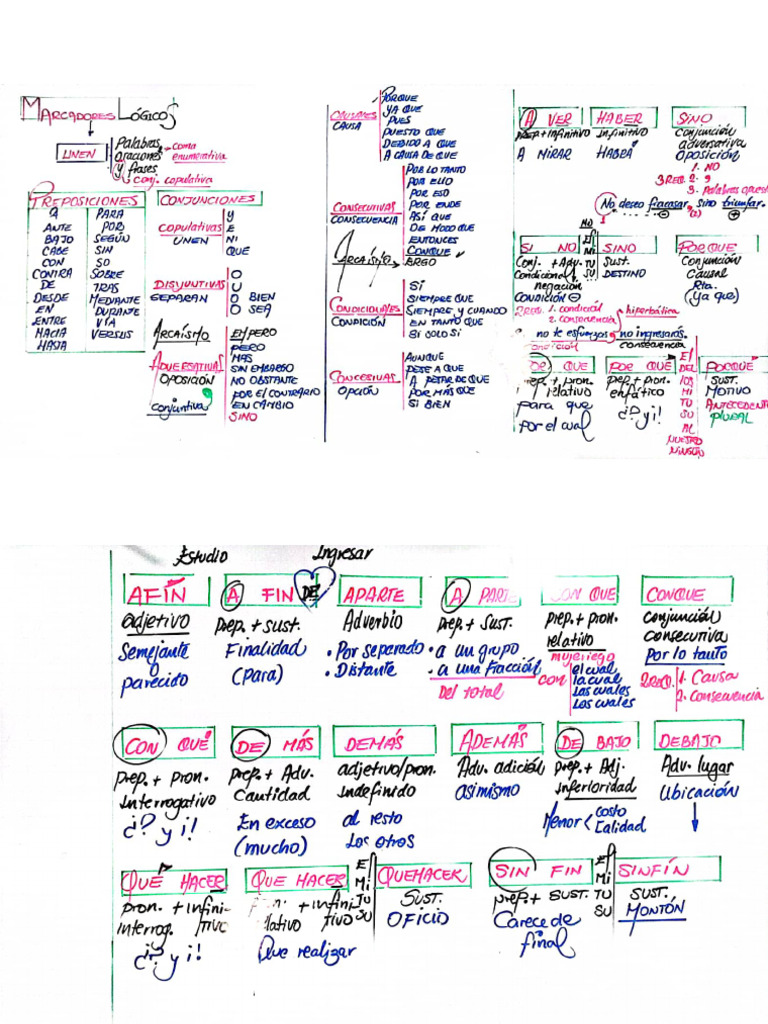 MARCADORES LÓGICOS
UNEN
Palabras
oraciones
y frases
coma
enumerativa
conj. copulativa
PREPOSICIONES
A PARA
ANTE POR
BAJO SEGÚN
CABE SIN
CON SO
CONTRA SOBRE
DE TRAS
DESDE MEDIANTE
EN DURANTE
ENTRE VÍA
HACIA VERSUS
HASTA
CONJUNCIONES
COPULATIVAS
UNEN
Y
E
NI
QUE
DISYUNTIVAS
SEPARAN
O
U
O BIEN
O SEA
ARCAÍSMO
EMPERO
ADVERSATIVAS
OPOSICIÓN
conjuntiva
PERO
MAS
SIN EMBARGO
NO OBSTANTE
POR EL CONTRARIO
EN CAMBIO
SINO
CAUSALES
CAUSA
PORQUE
YA QUE
PUES
PUESTO QUE
DEBIDO A QUE
A CAUSA DE QUE
CONSECUTIVAS
CONSECUENCIA
POR LO TANTO
POR ELLO
POR ESO
POR ENDE
ASÍ QUE
DE MODO QUE
ENTONCES
CONQUE
ARCAÍSMO
ERGO
CONDICIONALES
CONDICIÓN
SÍ
SIEMPRE QUE
SIEMPRE Y CUANDO
EN TANTO QUE
SI SOLO SI
CONCESIVAS
OPCIÓN
AUNQUE
PESE A QUE
A PESAR DE QUE
POR MÁS QUE
SI BIEN
A VER
PREP + INFINITIVO
A MIRAR
HABER
INFINITIVO
HABRÁ
SINO
Conjunción
adversativa
OPOSICIÓN
3 REQ.
1. NO
2. ,
3. Palabras opuest
No deseo fracasar, sino triunfar.
SI NO
Conj. + Adv.
Condicional negación
CONDICIÓN
MI
TU
SU
SINO
SUST.
DESTINO
PORQUE
Conjunción
Causal
Rta.
(Ya que)
2 REQ. 1. condición
2. consecuencia
hiperbática
no te esfuerzas no ingresarás
consecuencia
POR QUE
prep. + pron.
relativo
para que
por el cual
POR QUE
prep + pron.
enfático
¿? y ¡!
EL
DEL
LOS
MI
TU
SU
AL
NUESTRO
NINGÚN
PORQUE
SUST.
MOTIVO
ANTECEDENTE
PLURAL
Estudio Ingresar
AFÍN
adjetivo
Semejante
o
parecido
A FIN DE
Prep. + sust.
Finalidad
(para)
APARTE
Adverbio
• Por separado
• Distante
A PARTE
Prep. + Sust.
• a un grupo
• a una fracción
Del total
CON QUE
prep. + pron.
relativo
mujeriego
con
el cual
la cual
las cuales
los cuales
CONQUE
conjunción
consecutiva
Por lo tanto
2 REQ. 1. Causa
2. Consecuencia
CON QUÉ
prep. + Pron.
Interrogativo
¿? y ¡!
DE MÁS
prep. + Adv.
Cantidad
En exceso
(mucho)
DEMÁS
adjetivo/pron.
Indefinido
al resto
Los otros
ADEMÁS
Adv. adición
asimismo
DE BAJO
Prep. + Adj.
Inferioridad
Menor < costo
Calidad
DEBAJO
Adv. lugar
Ubicación
QUÉ HACER
pron. + infini-
interrog. tivo
¿? y ¡!
QUE HACER
+ infini-
tivo
Que realizar
EL
MI
TU
SU
QUEHACER
SUST.
OFICIO
SIN FIN
prep. + SUST.
Carece de
final
EL
MI
TU
SU
SINFÍN
SUST.
MONTÓN